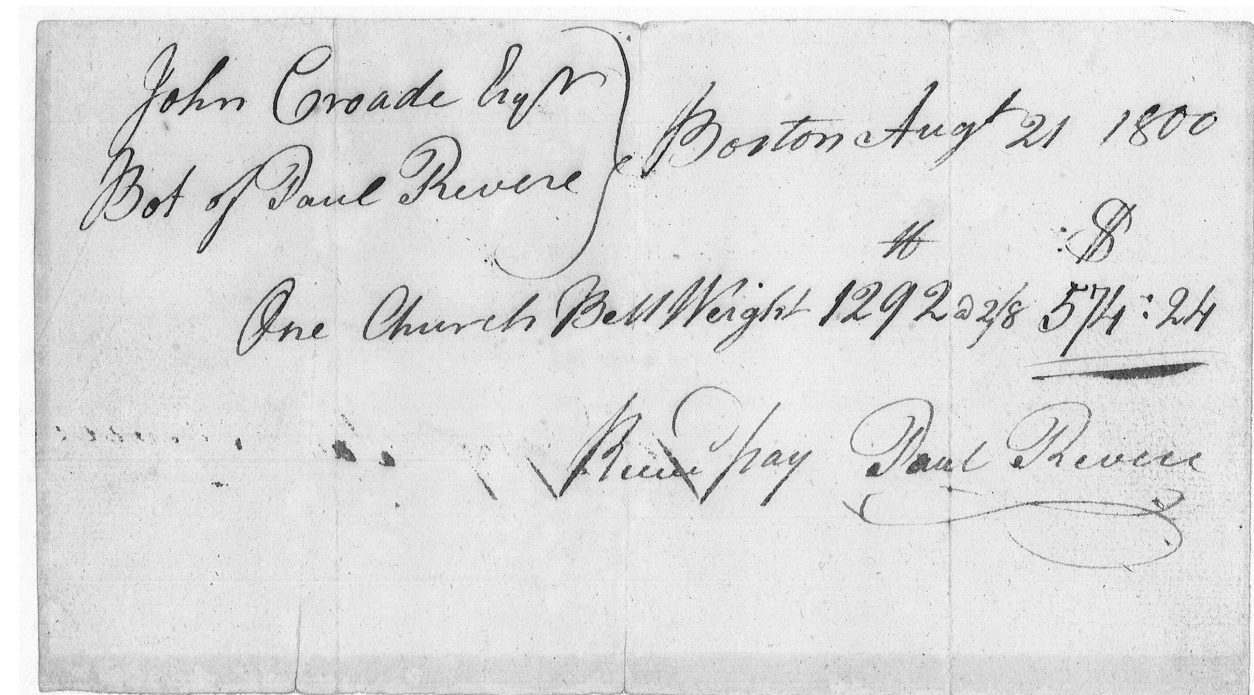 John Croade Esqr
Bot of Paul Revere
Boston Augt 21 1800
lb $
One Church Bell Weight 1292 @ 2/8 574:24
Recd pay Paul Revere